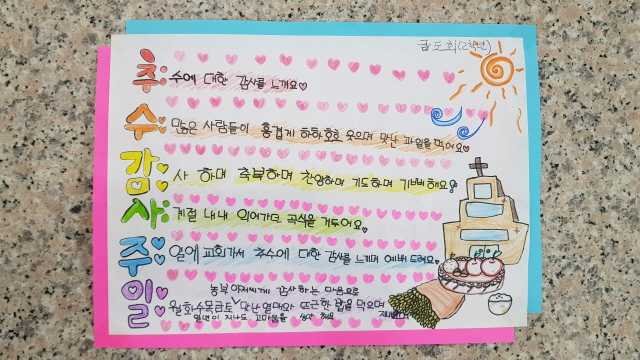 금도희(2학년)
추: 수에 대한 감사를 느껴요
수: 많은 사람들이 흥겹게 하하호호 웃으며 맛난 과일을 먹어요
감: 사 하며 축복하며 찬양하며 기도하며 기뻐해요
사: 계절 내내 익어가던 곡식을 거두어요.
주: 일에 교회가서 추수에 대한 감사를 느끼며 예배 드려요.
농부 아저씨께 감사하는 마음으로
일: 월화수목금토 맛난 열매와 뜨근한 밥을 먹으며
일년이 지나도 고마움을 해요